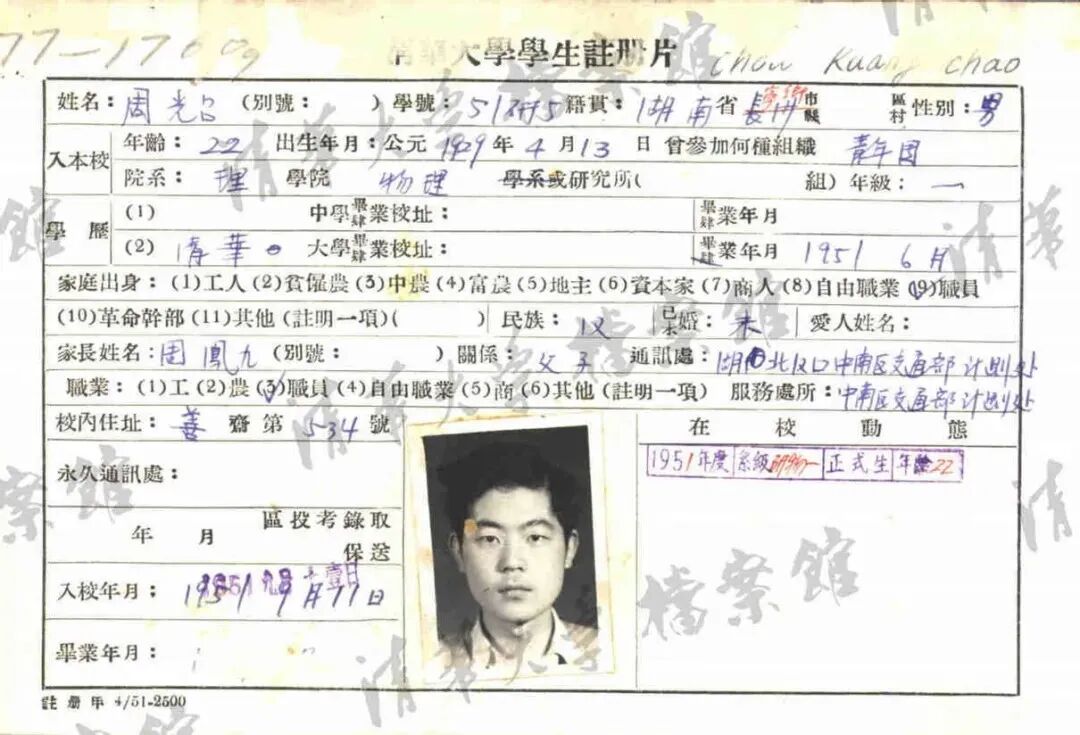 77-1760g
清華大學學生註册片
Chou Kuang chao
姓名：周光召 (別號： ) 學號： 籍貫：湖南省長沙市縣 寧鄉 區村 性別：男
入本校
年齡：22 出生年月：公元1929年4月13日 曾參加何種組織 青年团
院系：理學院 物理 學系或研究所( 組) 年級：一
學歷
(1) 中學畢肄業校址： 畢肄業年月
(2) 清華大學畢肄業校址： 畢肄業年月 1951 6月
家庭出身：(1)工人(2)貧僱農(3)中農(4)富農(5)地主(6)資本家(7)商人(8)自由職業(9)職員
(10)革命幹部(11)其他(註明一項)( ) 民族：汉 已未婚：未 愛人姓名：
家長姓名：周鳳九 (別號： ) 關係：父子 通訊處：湖北汉口中南区交通部计划处
職業：(1)工(2)農(3)職員(4)自由職業(5)商(6)其他(註明一項) 服務處所：中南区交通部计划处
校內住址：善齋第534號
在校動態
1951年度 系級研物一 正式生 年齡22
永久通訊處：
年 月 區投考錄取
保送
入校年月：1951 9月11日
畢業年月：
註册 年 4/51-2500
清華大學檔案館